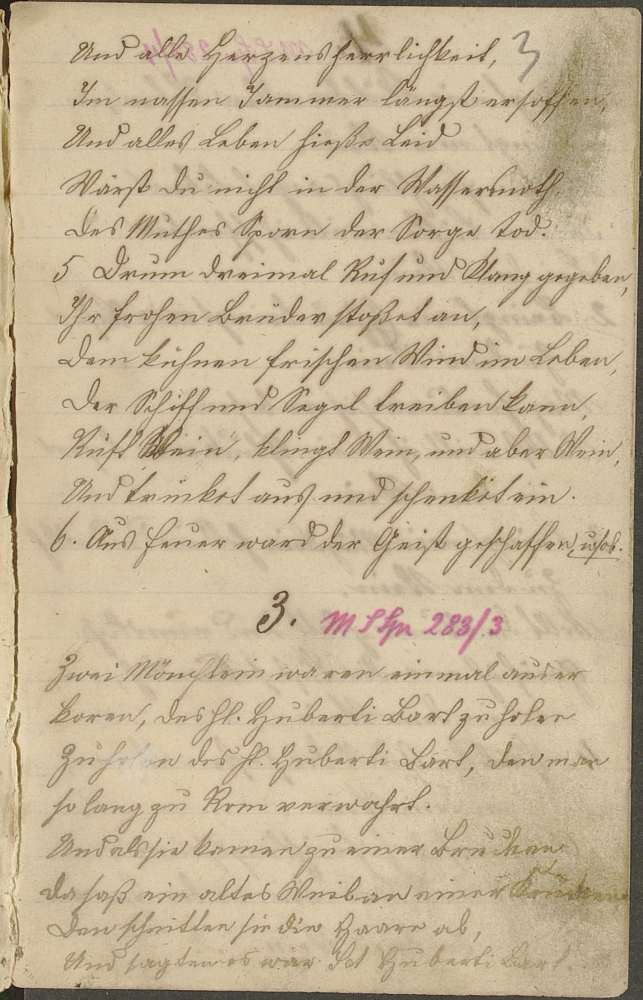 Und alle Herzensherrlichkeit, 3
Im nassen Jammer längst ersoffen,
Und alles Leben hieße Leid
Wärst du nicht in der Wassersnoth
Des Muthes Sporn der Sorge Tod.
5 Drum dreimal Ruf und Klang gegeben,
Ihr frohen Brüder stoßet an,
Dem kühnen frischen Wind im Leben,
Der Schiff und Segel treiben kann,
Ruft Wein, klingt Wein, und aber Wein,
Und trinket aus und schenket ein.
6. Aus Feuer ward der Geist geschaffen,
3. M S Hu 283/3
Zwei Mönchlein waren einmal auser
koren, des hl. Huberti Bart zu holen
Zu holen des hl. Huberti Bart, den man
so lang zu Rom verwahrt.
Und als sie kamen zu einer Brucken
da saß ein altes Weib an einer
Den schnitten sie die Haare ab,
Und sagten es wär Huberti Bart.